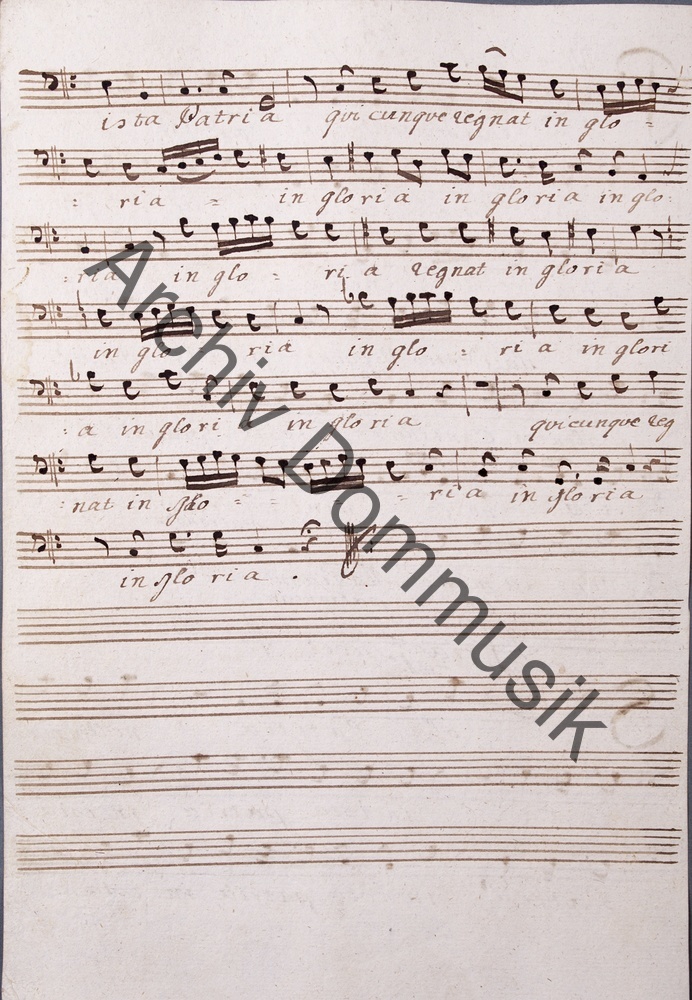 ista Patria quicunque regnat in glo =
: ria = in gloria in gloria in glo:
: ria in glo : ri a regnat in gloria
in glo ria in glo : ri a in glori
: a in glori a in gloria quicunque reg
: nat in glo = = = ria in gloria
in gloria .
Archiv Dommusik